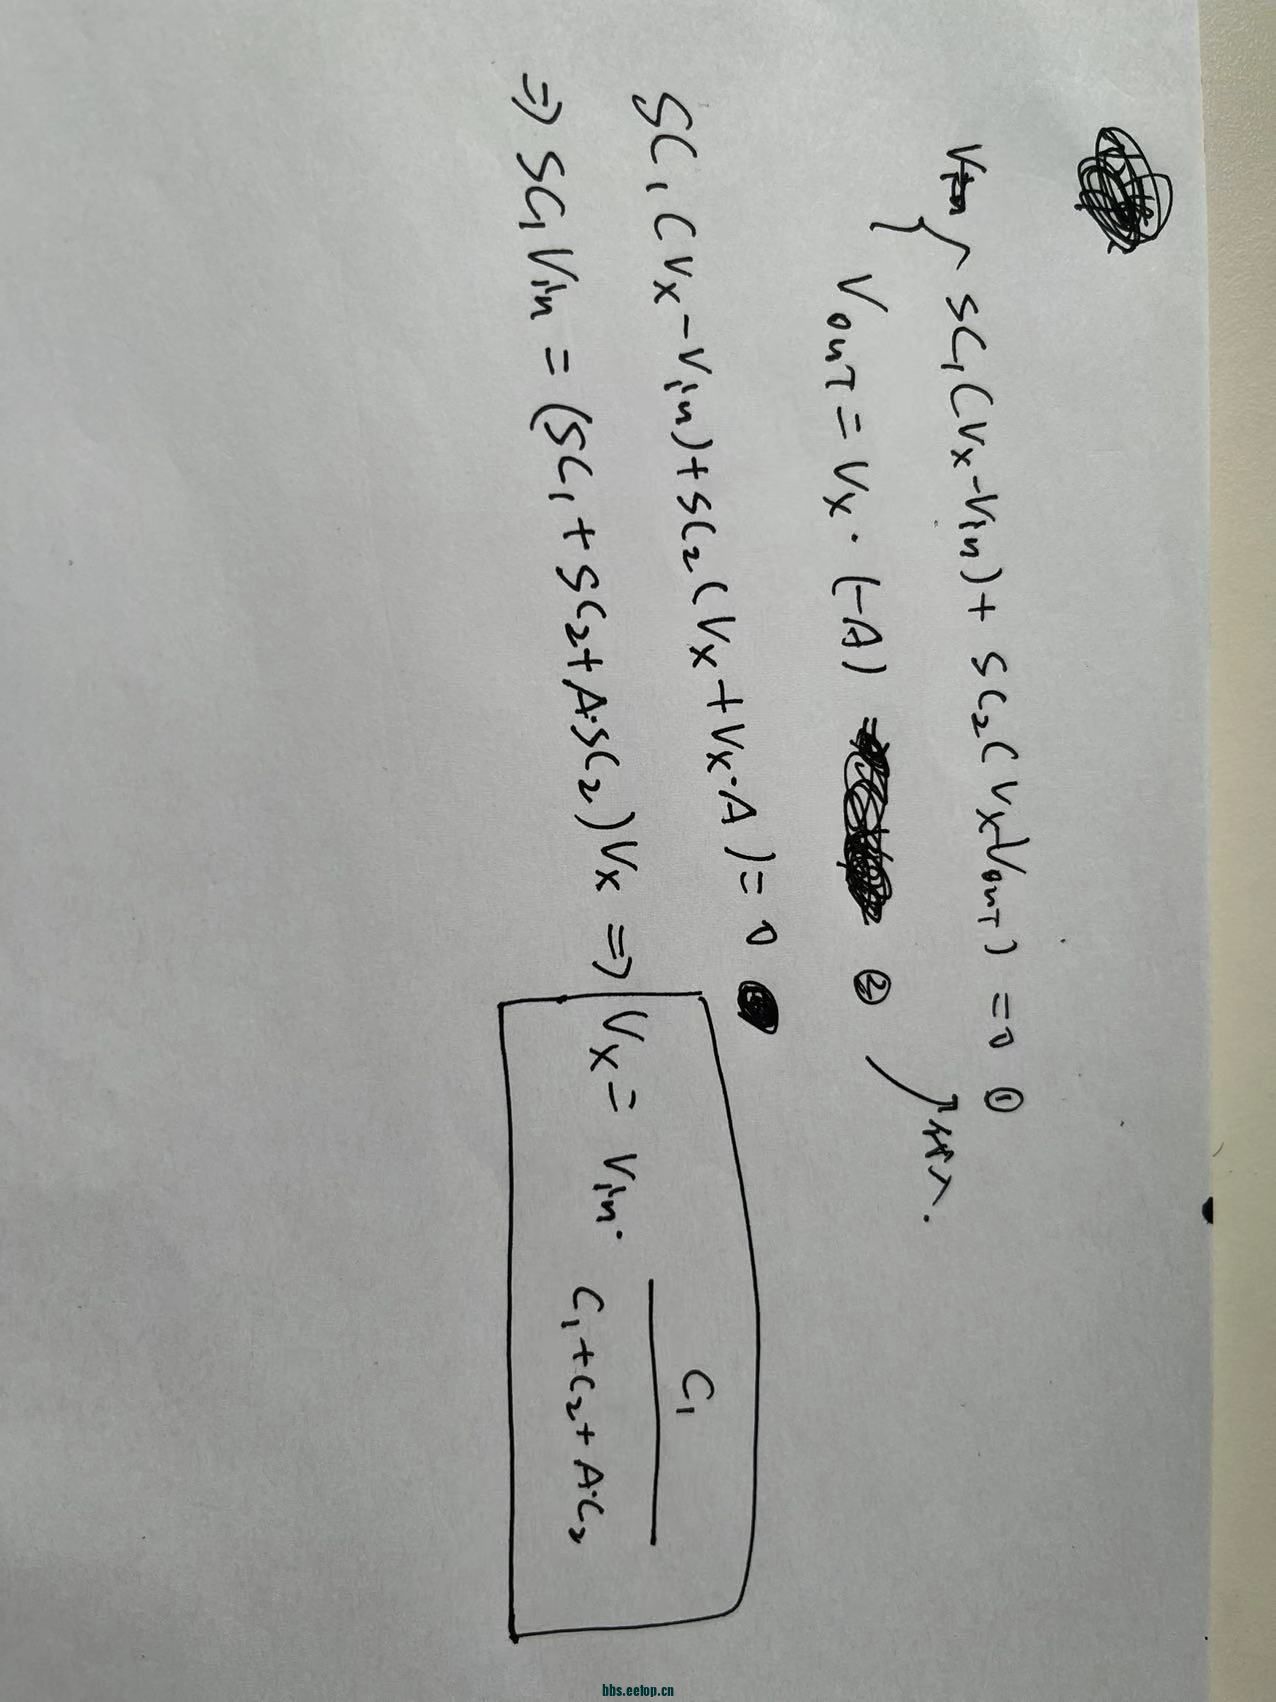 SC₁(Vx-Vin)+SC₂(Vx-VouT)=0 ①
VouT=Vx·(-A) ②
SC₁(Vx-Vin)+SC₂(Vx+Vx·A)=0
⇒ SC₁Vin=(SC₁+SC₂+A·SC₂)Vx ⇒ Vx=Vin· C₁
C₁+C₂+A·C₂
bbs.eetop.cn